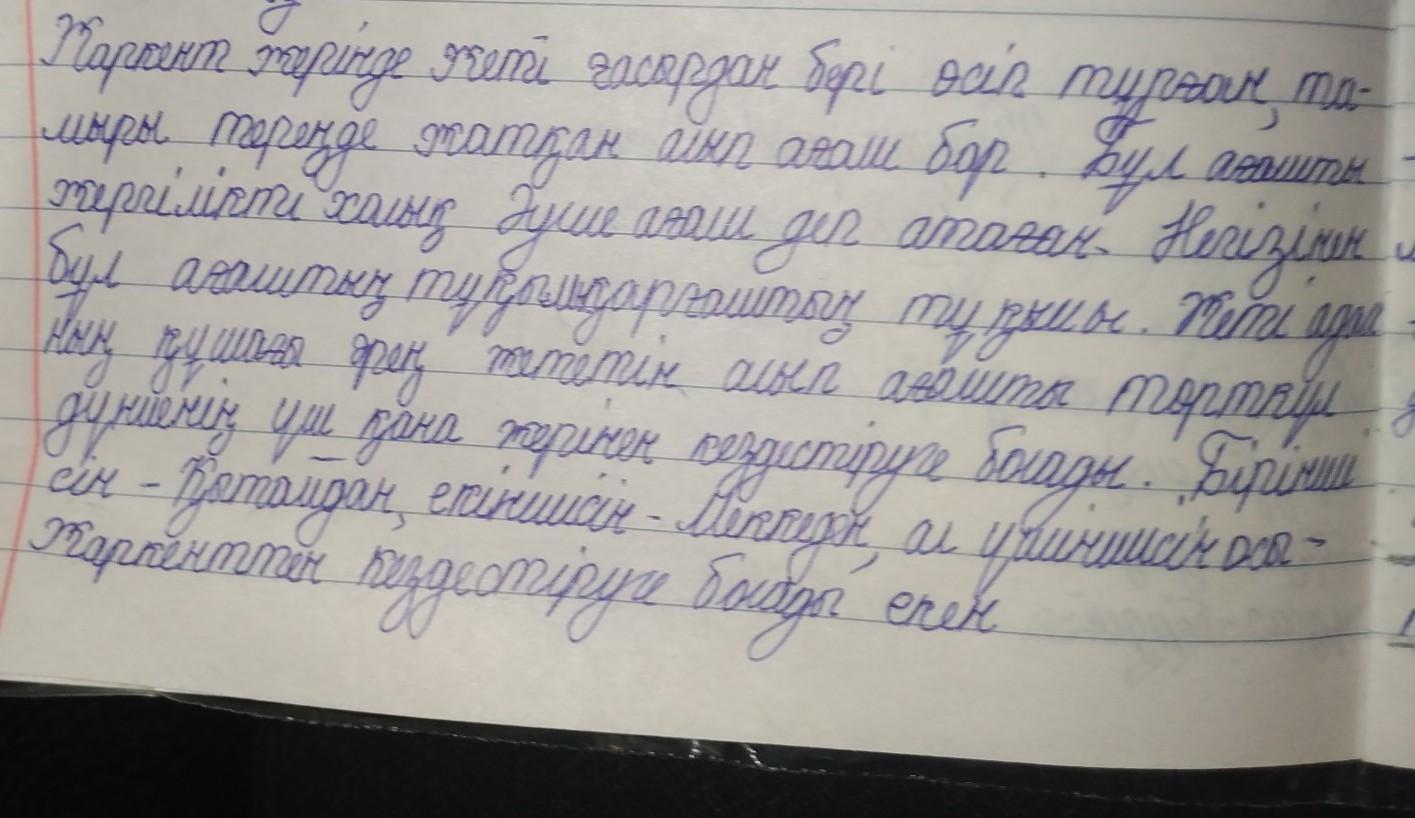 Жаркент жерінде жеті ғасырдан бері өсіп тұрған, та-
мыры тереңде жатқан алып ағаш бар. Бұл ағашты
жергілікті халық Әулие ағаш деп атаған. Негізінен
бұл ағаштың тұқымы қарағаштың тұқымы. Жеті адам
ның құшағы әрең жететін алып ағашты төрткүл
дүниенің үш қана жерінен кездестіруге болады. Бірінші
сін - Қытайдан, екіншісін - Меккеден, ал үшіншісін осы-
Жаркенттен кездестіруге болады екен